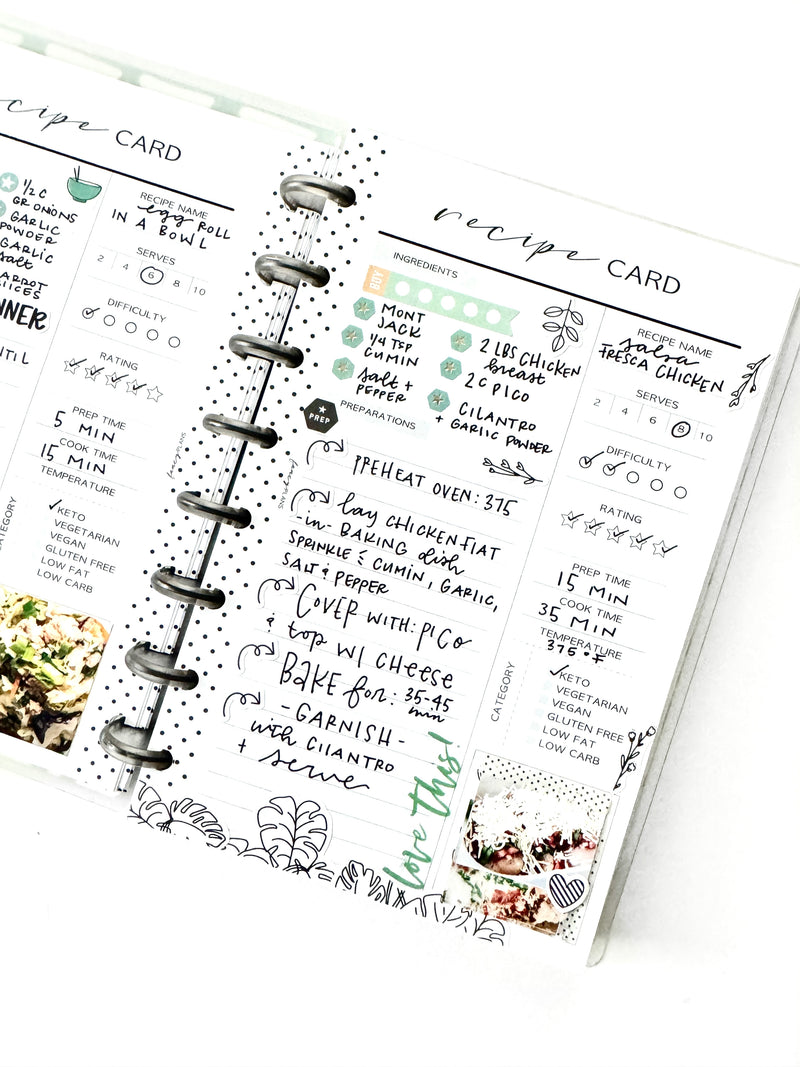 recipe CARD
1/2 C
GR ONIONS
GARLIC
POWDER
GARLIC
salt
RECIPE NAME
egg ROLL
IN A BOWL
SERVES
2 4 6 8 10
DIFFICULTY
RATING
PREP TIME
5 MIN
COOK TIME
15 MIN
TEMPERATURE
CATEGORY
KETO
VEGETARIAN
VEGAN
GLUTEN FREE
LOW FAT
LOW CARB
recipe CARD
INGREDIENTS
BUY
MONT
JACK
1/4 TSP
CUMIN
salt +
PEPPER
2 LBS CHICKEN
breast
2 C PICO
CILANTRO
+ GARLIC POWDER
PREP
PREPARATIONS
PREHEAT OVEN: 375
lay CHICKEN FLAT
-in- BAKING dish
SPRINKLE & CUMIN, GARLIC,
SALT & PEPPER
COVER WITH: PICO
& top W/ CHEESE
BAKE for: 35-45
min
-GARNISH-
with CILANTRO
+ serve
love this!
RECIPE NAME
salsa
FRESCA CHICKEN
SERVES
2 4 6 8 10
DIFFICULTY
RATING
PREP TIME
15 MIN
COOK TIME
35 MIN
TEMPERATURE
375°F
CATEGORY
KETO
VEGETARIAN
VEGAN
GLUTEN FREE
LOW FAT
LOW CARB